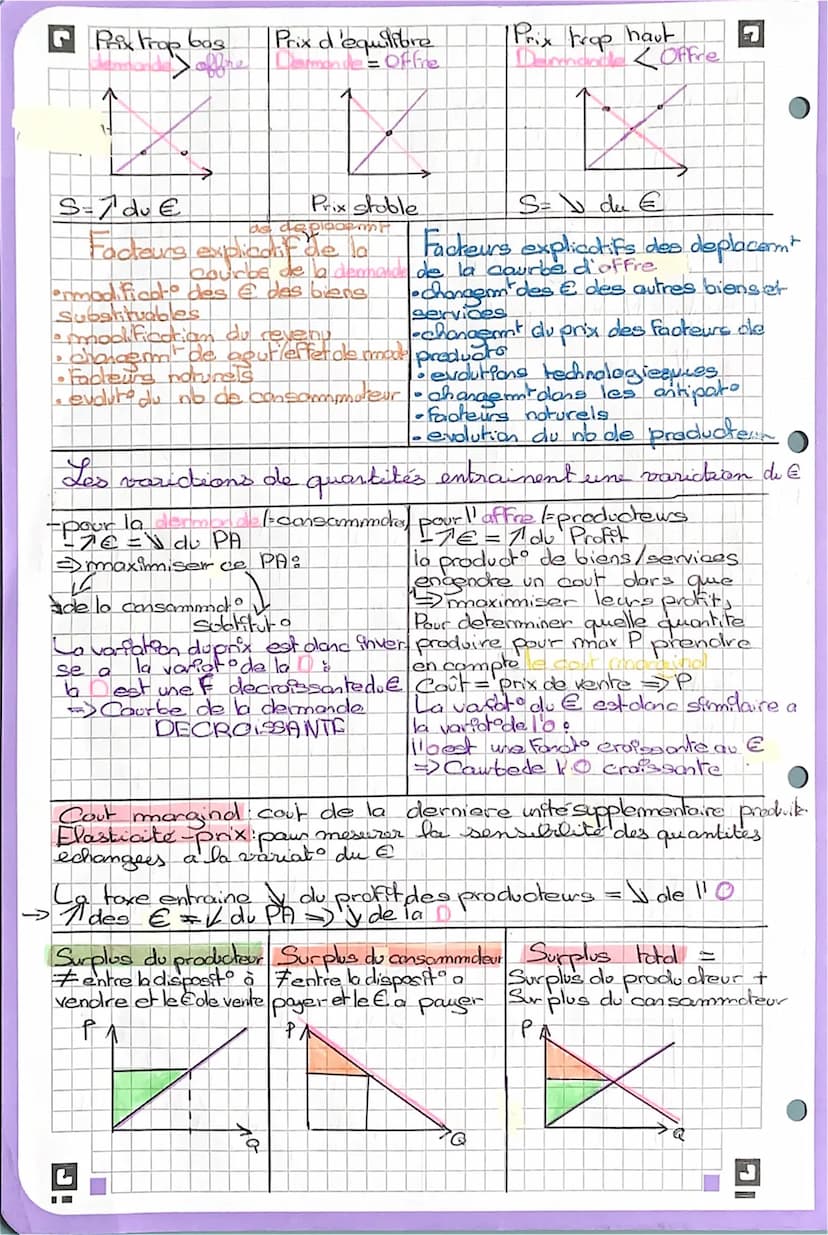 Prix trop bas
demande > offre
S= ↗ du €
Prix d'equilibre
Demande = Offre
Prix stable
Prix trop haut
Demande < Offre
S= ↘ du €
de deplacemt
Facteurs explicatif de la
courbe de la demande
•modificat° des € des biens
substituables
• modification du revenu
• changemt de gout/effet de mode
• facteurs naturels
• evolut° du nb de consommateur
Facteurs explicatifs des deplacemt
de la courbe d'offre
•changemt des € des autres biens et
services
•changemt du prix des facteurs de
product°
• evolutions technologiques
• changemt dans les antipat°
• facteurs naturels
• evolution du nb de producteurs
Les variations de quantités entrainent une variation du €
-pour la demande/=consommateur
-↗€ =↘ du PA
=> maximiser ce PA:
↘de la consommat°
substitut°
La variation du prix est donc inver
se a la variat° de la D :
la D est une F decroissante du €
=> Courbe de la demande
DECROISSANTE
pour l'offre/=producteurs
-↗€ = ↗ du Profit
la product° de biens/services
engendre un cout alors que
=> maximiser leurs profits
Pour determiner quelle quantite
produire pour max P prendre
en compte le cout marginal
Coût = prix de vente => P
La variat° du € est donc similaire a
la variat° de l'O :
l'O est une Fonct° croissante au €
=> Courbe de l'O croissante
Cout marginal : cout de la derniere unité supplementaire produite
Elasticité-prix : pour mesurer la sensibilité des quantités
echangees a la variat° du €
La taxe entraine ↘ du profit des producteurs = ↘ de l'O
→ ↗ des € = ↓ du PA => ↓ de la D
Surplus du producteur
≠ entre la disposit° à
vendre et le € de vente
P
Q
Surplus du consommateur
≠ entre la disposit° a
payer et le € a payer
P
Q
Surplus total =
Surplus du producteur +
Surplus du consommateur
P
Q